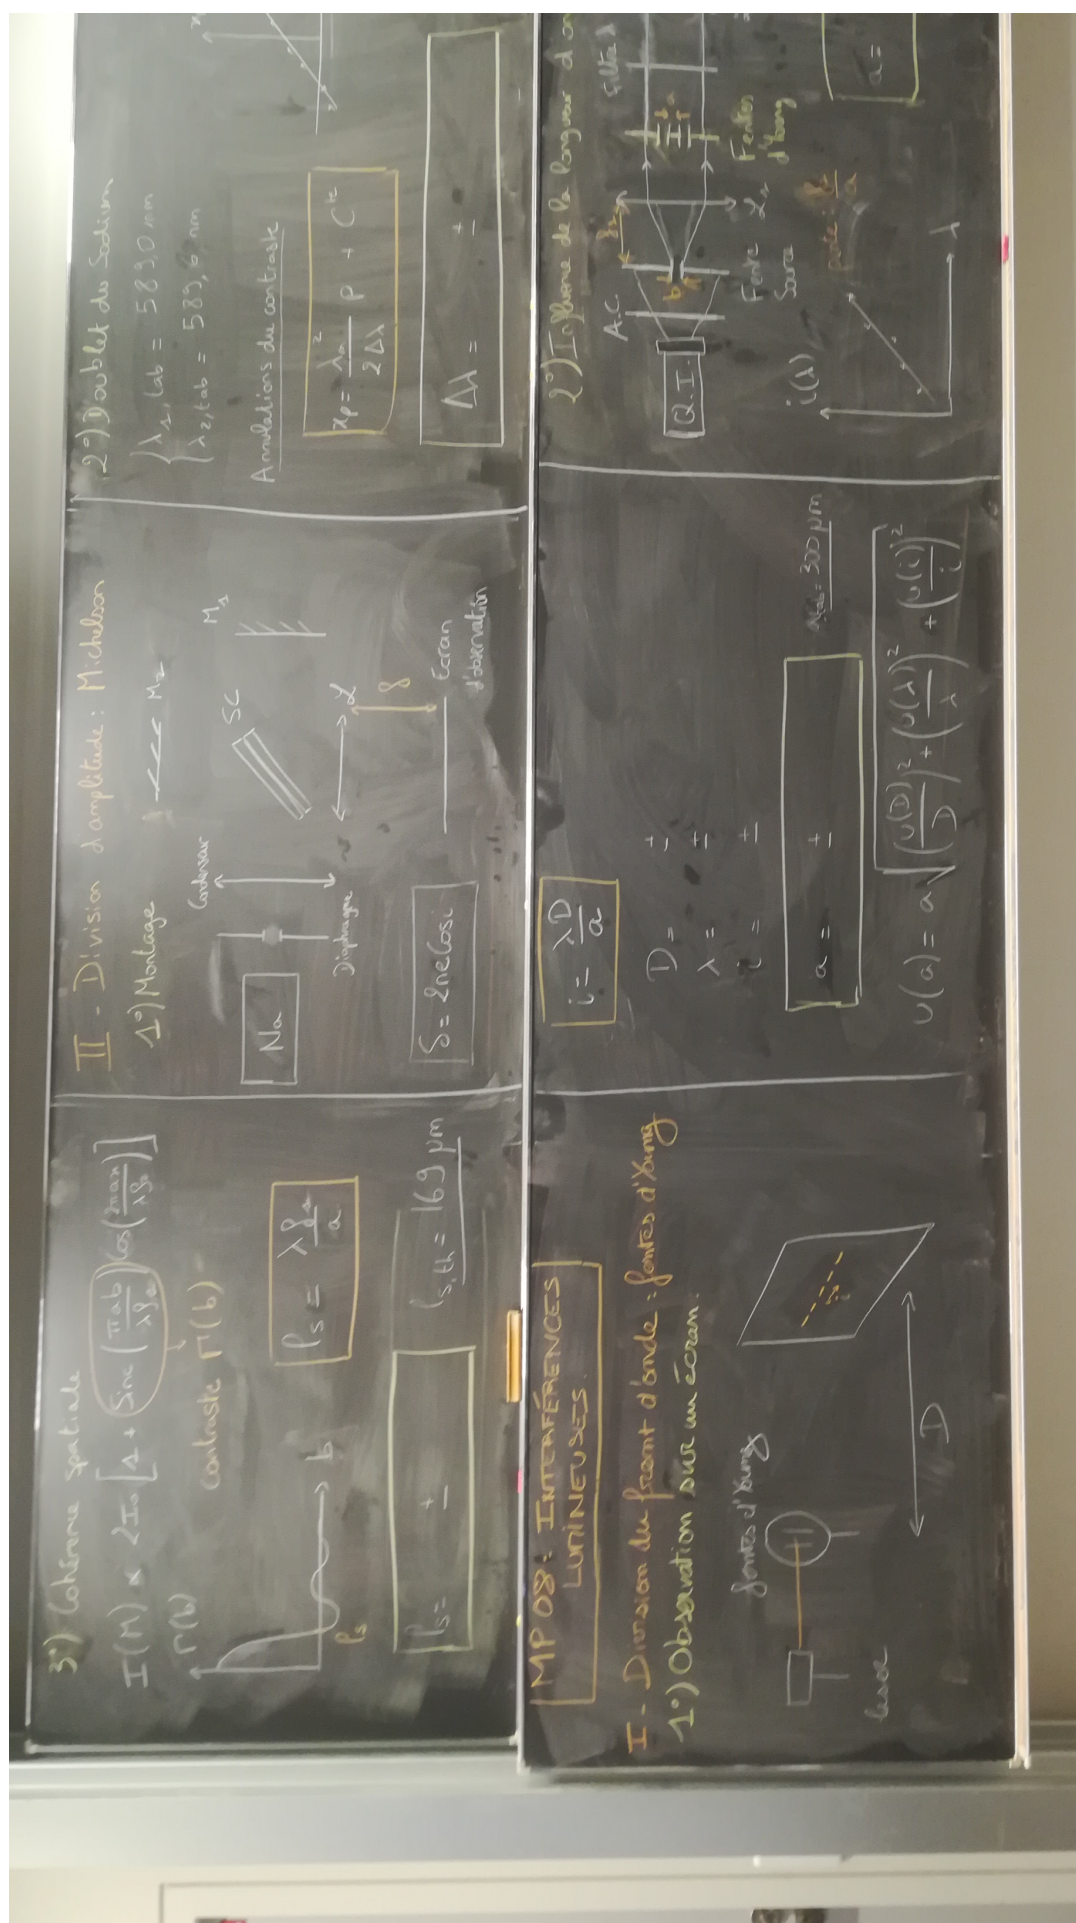 MP08: INTERFÉRENCES
LUMINEUSES.
I - Division du front d'onde : fentes d'Young
1°) Observation sur un écran.
fentes d'Young
laser
D
i = λD/a
D = ±
λ = ±
i = ±
a = ±
a_tab = 300 µm
u(a) = a √((u(D)/D)² + (u(λ)/λ)² + (u(i)/i)²)
2°) Influence de la longueur d'on
A.C.
Filtre λ
Q.I.
b
a
Fente
Source
Fentes
d'Young
i(λ)
λ
a =
3°) Cohérence spatiale
I(M) ∝ 2I₀ [1 + Sinc(πab/λf₁) Cos(
contraste Γ(b)
Γ(b)
b
ls
ls = λf₁/a
ls = ±
ls,th = 169 µm
II - Division d'amplitude : Michelson
1°) Montage
Condenseur
M₂
SC
M₁
Na
Diaphragme
L
Écran
d'observation
δ = 2ne Cos i
2°) Doublet du Sodium
λ₁,tab = 589,0 nm
λ₂,tab = 589,6 nm
Annulations du contraste
xp = λm²/2Δλ p + Cte
Δλ = ±